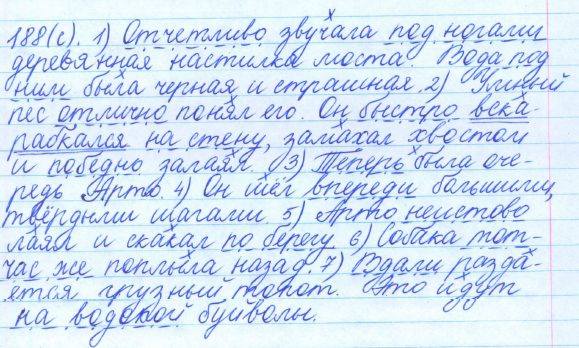 188(с). 1) Отчетливо звучала под ногами
деревянная настилка моста. Вода под
ним была черная и страшная. 2) Умный
пёс отлично понял его. Он быстро вска-
рабкался на стену, замахал хвостом
и победно залаял. 3) Теперь была оче-
редь Арто. 4) Он шёл впереди большими,
твёрдыми шагами. 5) Арто неистово
лаял и скакал по берегу. 6) Собака тот-
час же поплыла назад. 7) Вдали разда-
ётся грузный топот. Это идут
на водопой буйволы.